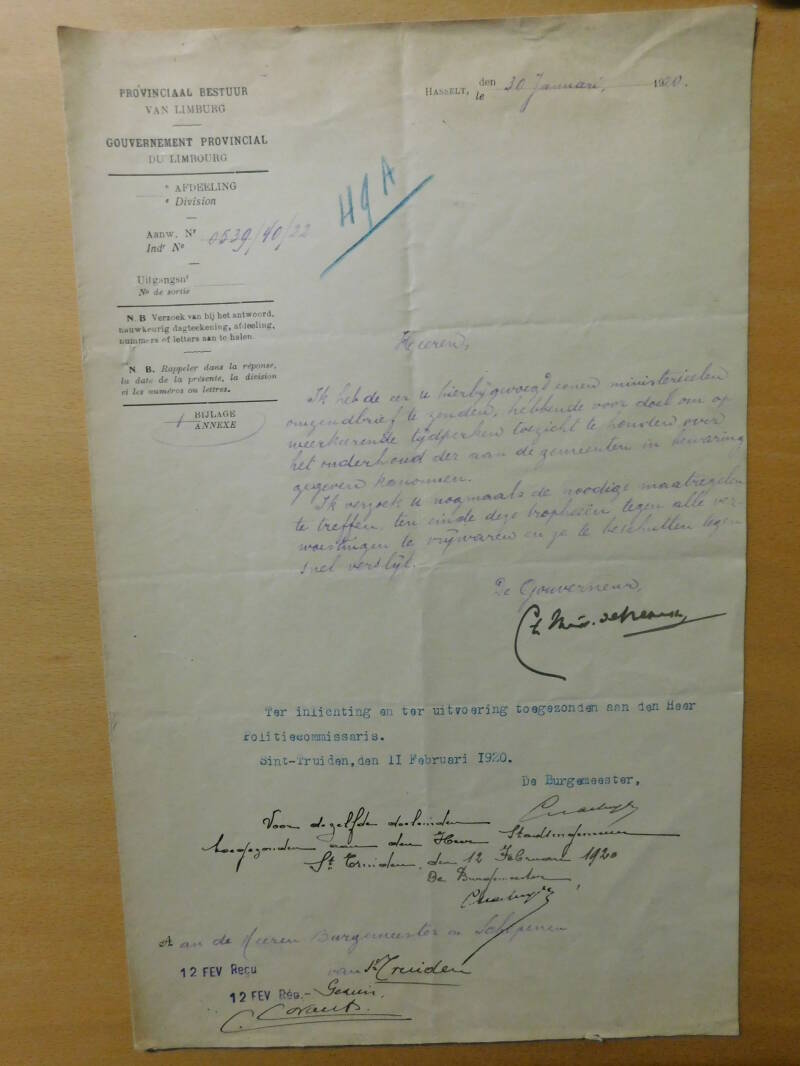 PROVINCIAAL BESTUUR
VAN LIMBURG
GOUVERNEMENT PROVINCIAL
DU LIMBOURG
e AFDEELING
e Division
Aanw. Nr
Indr No 0539/40/22
Uitgangsnr
No de sortie
N. B Verzoek van bij het antwoord,
nauwkeurig dagteekening, afdeeling,
nummers of letters aan te halen.
N. B. Rappeler dans la réponse,
la date de la présente, la division
et les numéros ou lettres.
1 BIJLAGE
ANNEXE
HASSELT, den
le 30 Januari, 1920.
49 A
Heeren,
Ik heb de eer u hierbijgevoegd eenen ministerieelen
omzendbrief te zenden, hebbende voor doel om op
weerkeerende tijdperken toezicht te houden over
het onderhoud der aan de gemeenten in bewaring
gegeven kanonnen.
Ik verzoek u nogmaals de noodige maatregelen
te treffen, ten einde deze tropheeën tegen alle ver-
woestingen te vrijwaren en ze te beschutten tegen
snel verslijt.
De Gouverneur,
Ter inlichting en ter uitvoering toegezonden aan den Heer
Politiecommissaris.
Sint-Truiden, den 11 Februari 1920.
De Burgemeester,
Voor dezelfde doeleinden
toegezonden aan den Heer Stadsingenieur
St Truiden, den 12 Februari 1920
De Burgemeester
A an de Heeren Burgemeester en Schepenen
van St Truiden
12 FEV Reçu
12 FEV Rég.-